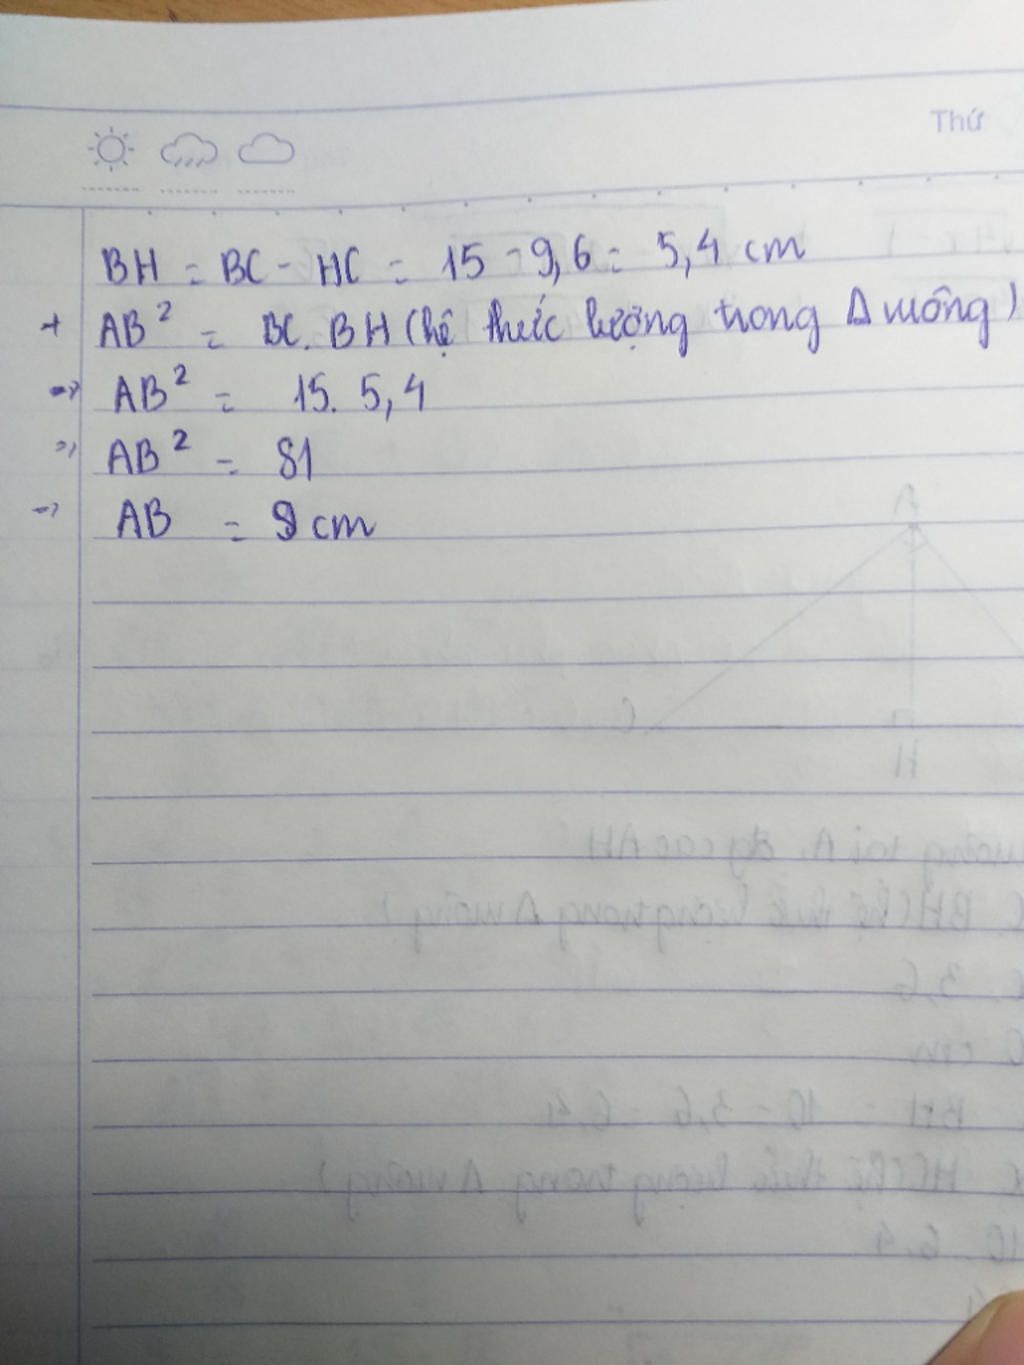 Thứ
BH = BC - HC = 15 - 9,6 = 5,4 cm
+ AB² = BC. BH (hệ thức lượng trong Δ vuông)
=> AB² = 15. 5,4
=> AB² = 81
=> AB = 9 cm